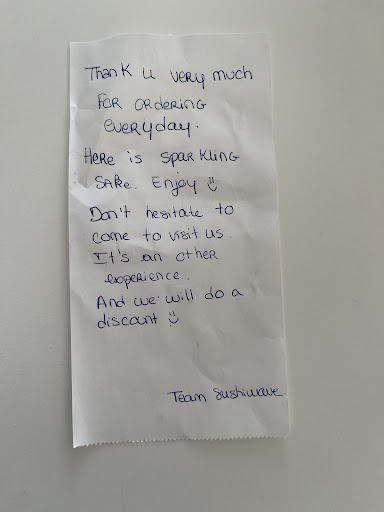 Thank u very much
for ordering
everyday.
Here is sparkling
sake. Enjoy :)
Don't hesitate to
come to visit us.
It's an other
experience.
And we will do a
discount :)
Team Sushiwave